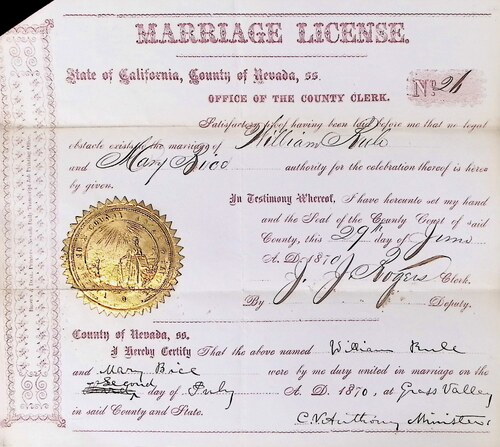 MARRIAGE LICENSE.
State of California, County of Nevada, ss.
No 26
OFFICE OF THE COUNTY CLERK.
Satisfactory proof having been before me that no legal
obstacle exists to the marriage of William Rule
and Mary Bice authority for the celebration thereof is hereby
by given.
In Testimony Whereof, I have hereunto set my hand
and the Seal of the County Court of said
County, this 29th day of June
A. D. 1870
J. J. Rogers Clerk.
By Deputy.
County of Nevada, ss.
I Hereby Certify That the above named William Rule
and Mary Bice were by me duly united in marriage on the
Second day of July A. D. 1870, at Grass Valley
in said County and State.
C. V. Anthony Minister